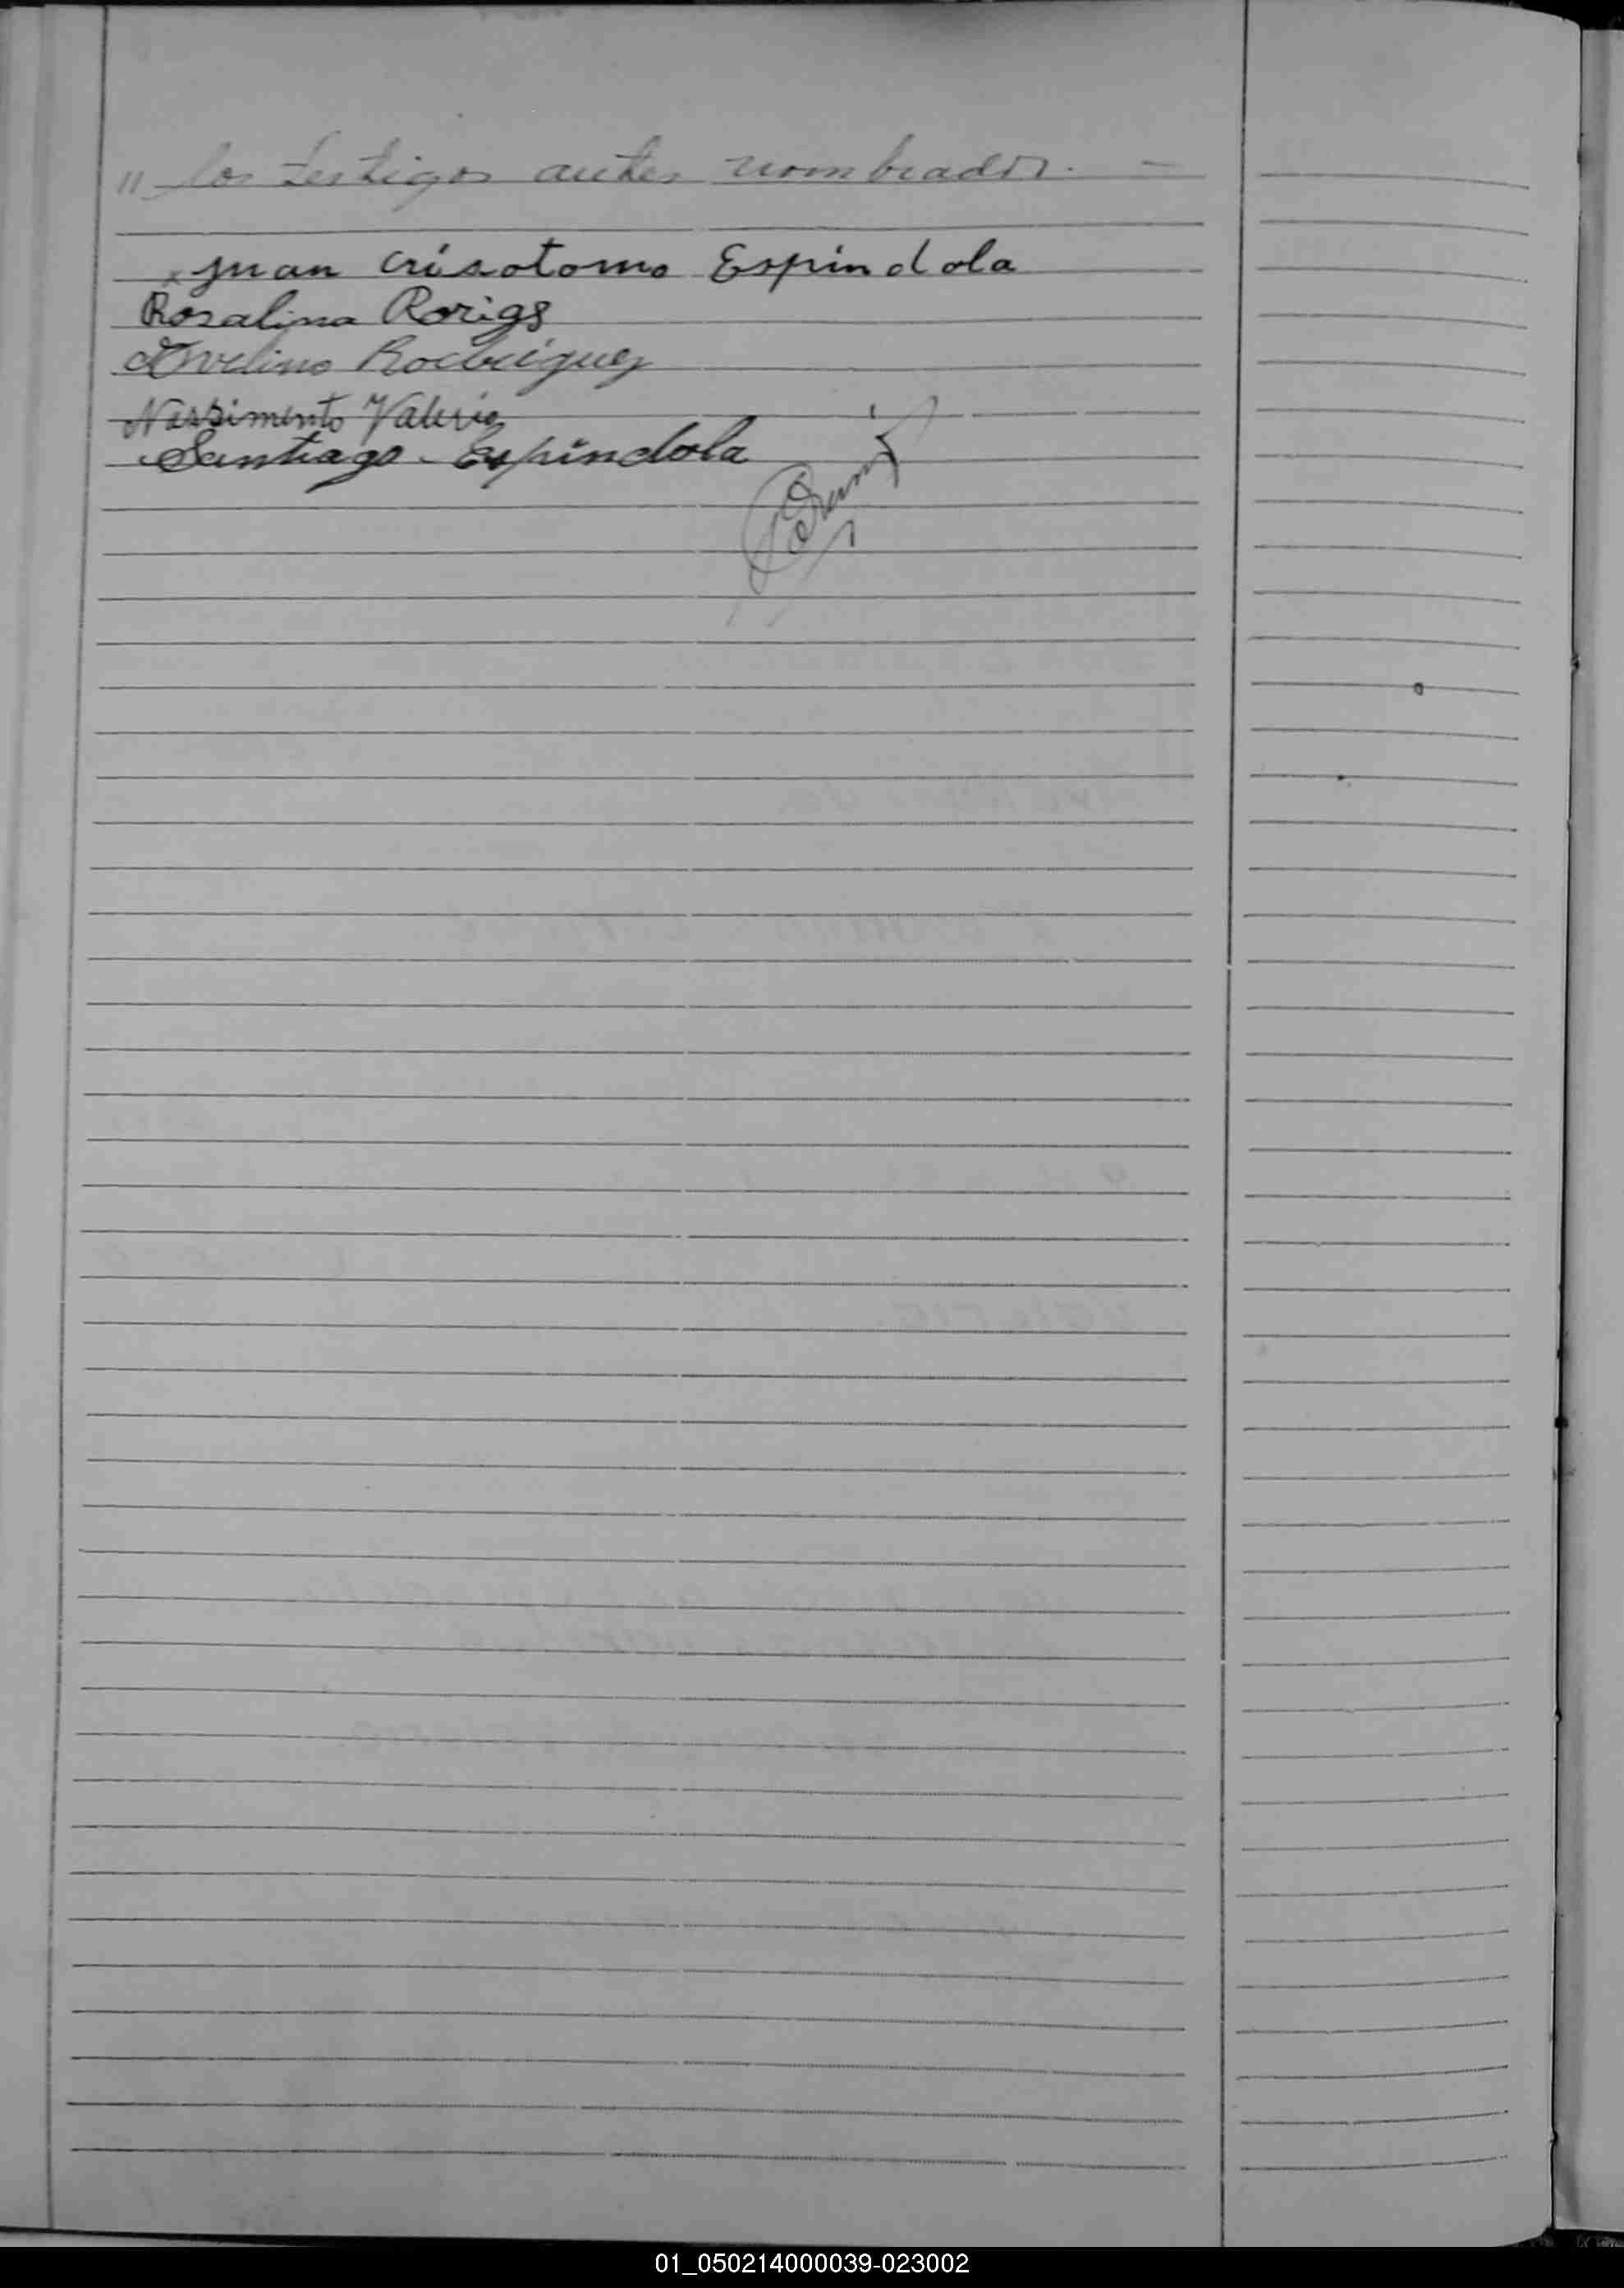 " los testigos antes nombrados. -
x Juan crisotomo Espindola
Rosalina Rorigs
Avelino Rodriguez
Nassimento Valerio
Santiago - Espindola
01_050214000039-023002